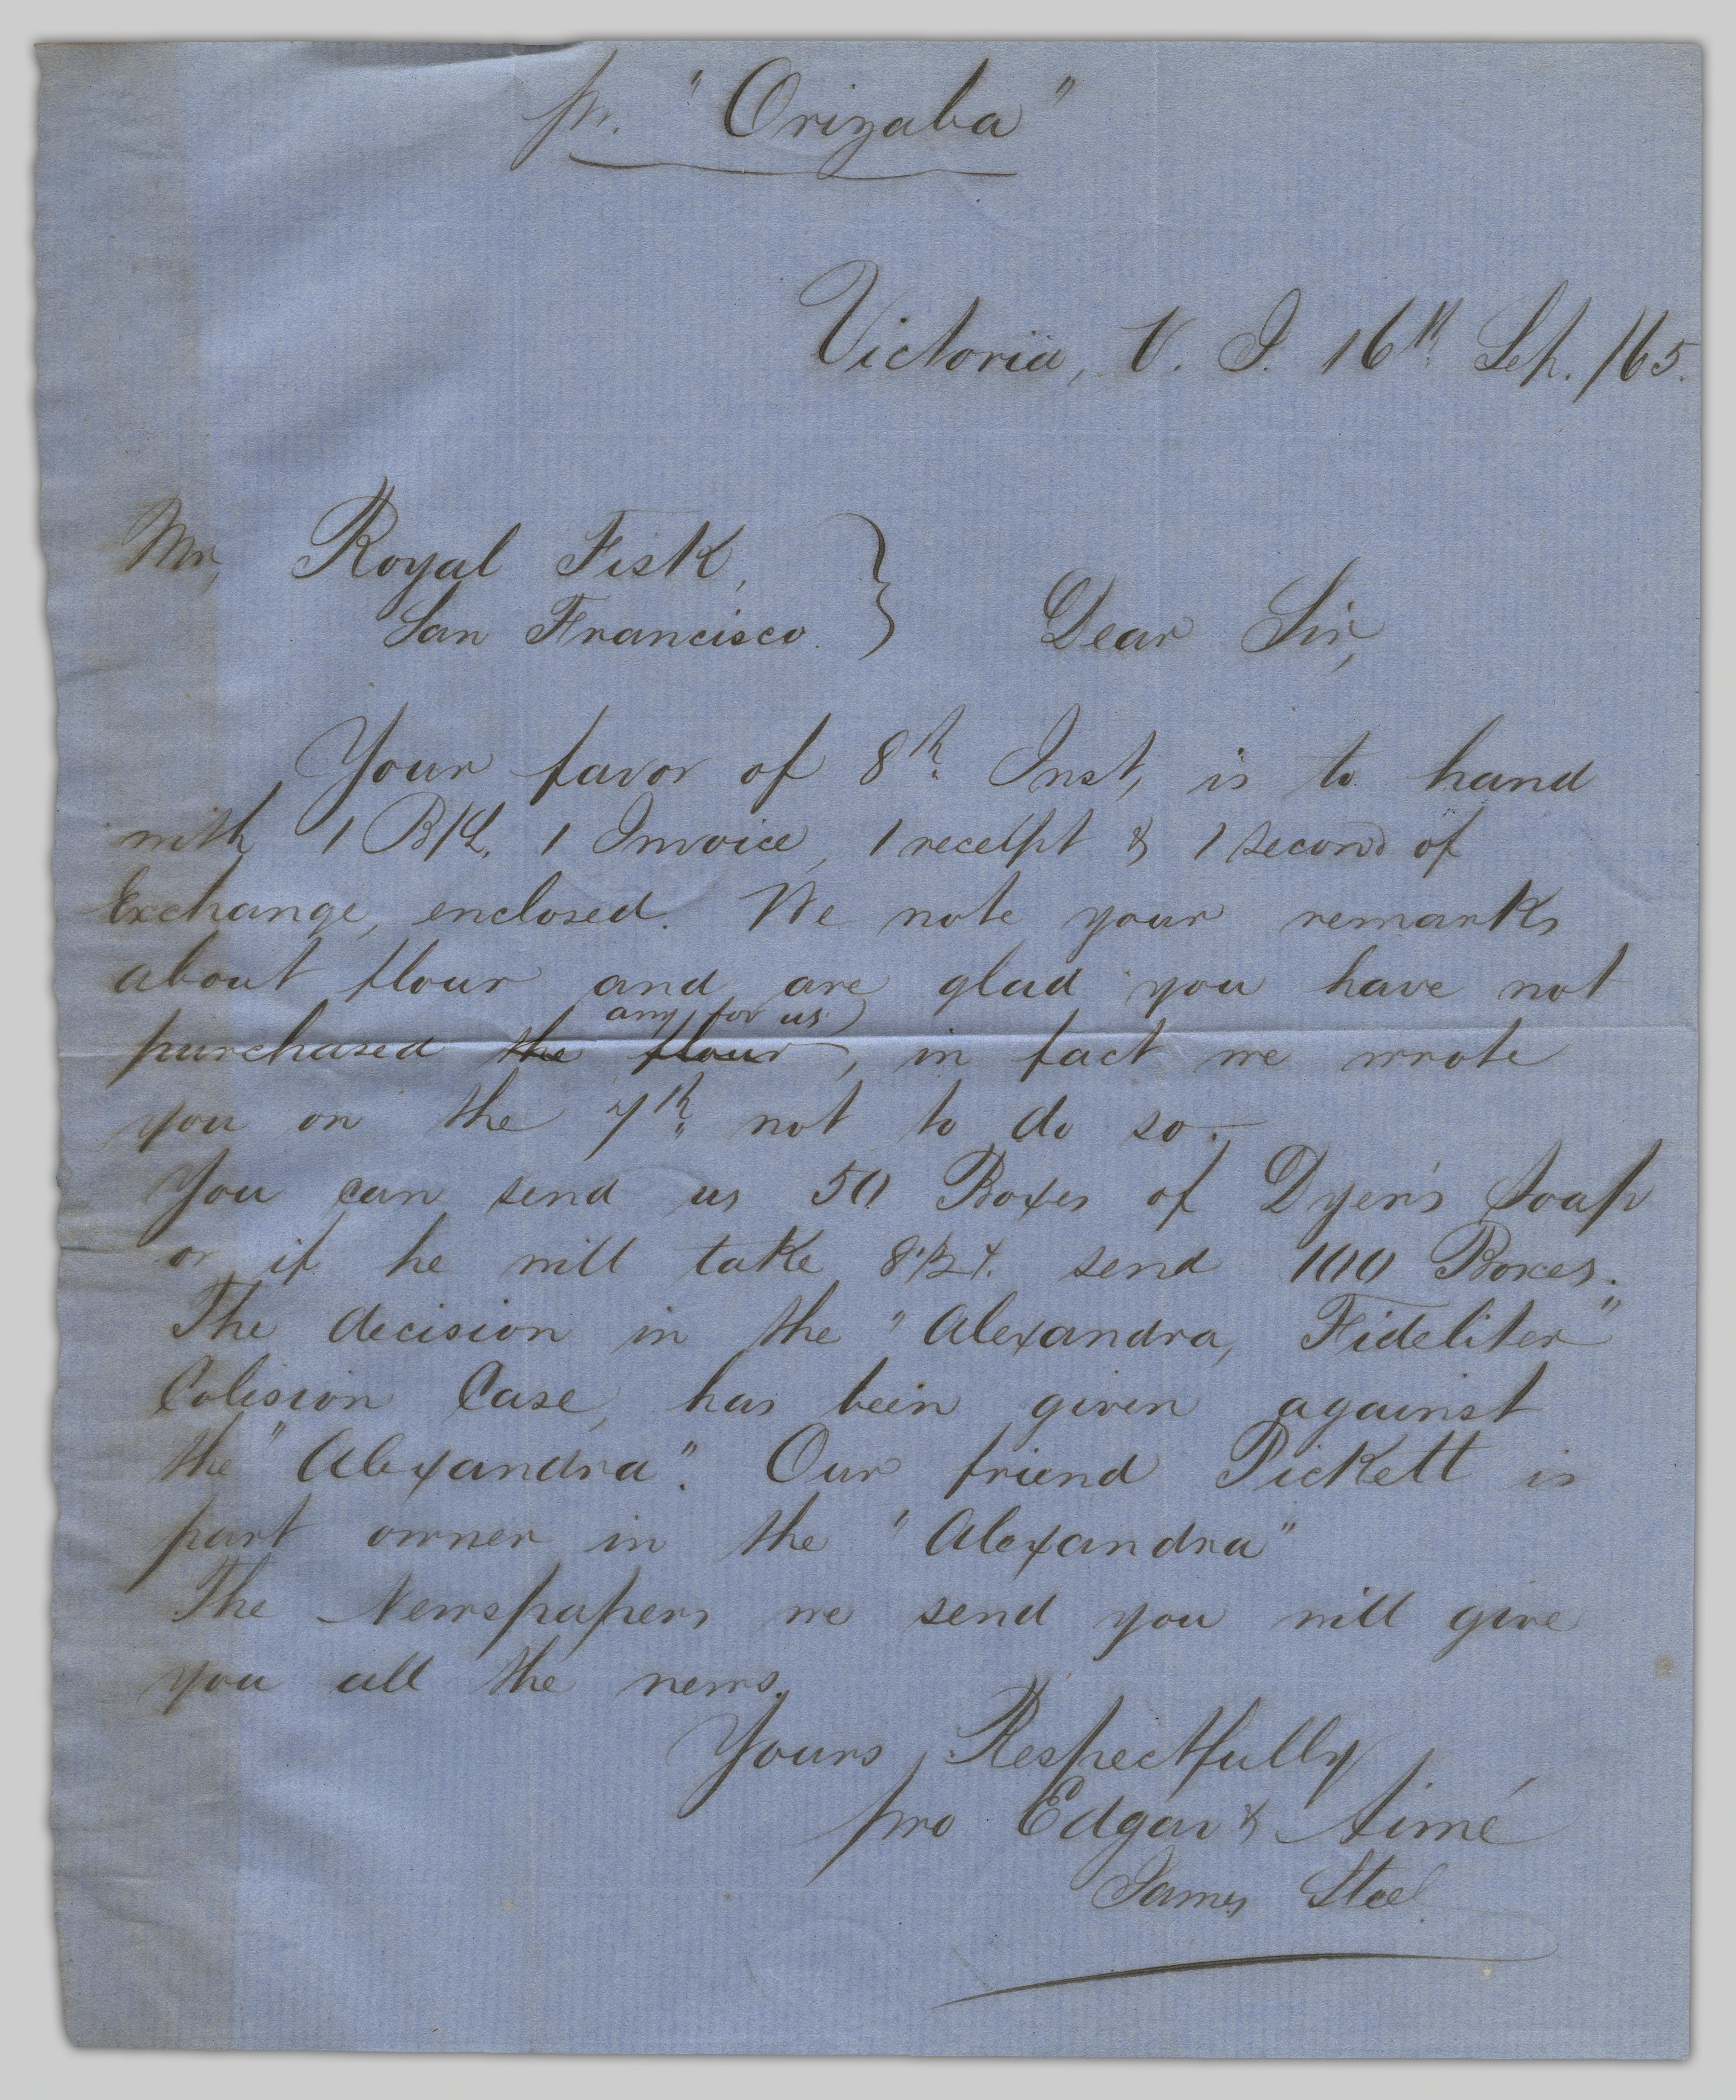 pr. "Orizaba"
Victoria, V. I. 16th Sep. /65.
Mr, Royal Fisk,
San Francisco. } Dear Sir,
Your favor of 8th Inst, is to hand
with 1 B/L, 1 Invoice, 1 receipt & 1 second of
Exchange, enclosed. We note your remarks
about flour and are glad you have not
any for us
purchased the flour, in fact we wrote
you on the 7th not to do so.
You can send us 50 Boxes of Dyer's Soap
or if he will take 8 1/2 ¢. send 100 Boxes.
The decision in the "Alexandra, Fideliter"
Colision Case, has been given against
the "Alexandra". Our friend Pickett is
part owner in the "Alexandra"
The Newspapers we send you will give
you all the news.
Yours Respectfully
pro Edgar & Aimé
James Steel